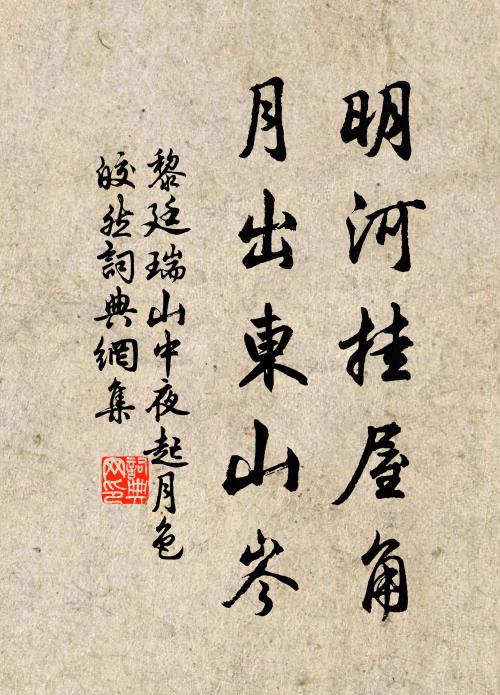 明河挂屋角
月出東山岑
黎廷瑞山中夜起月色
皎然詞典網集
詞典網印